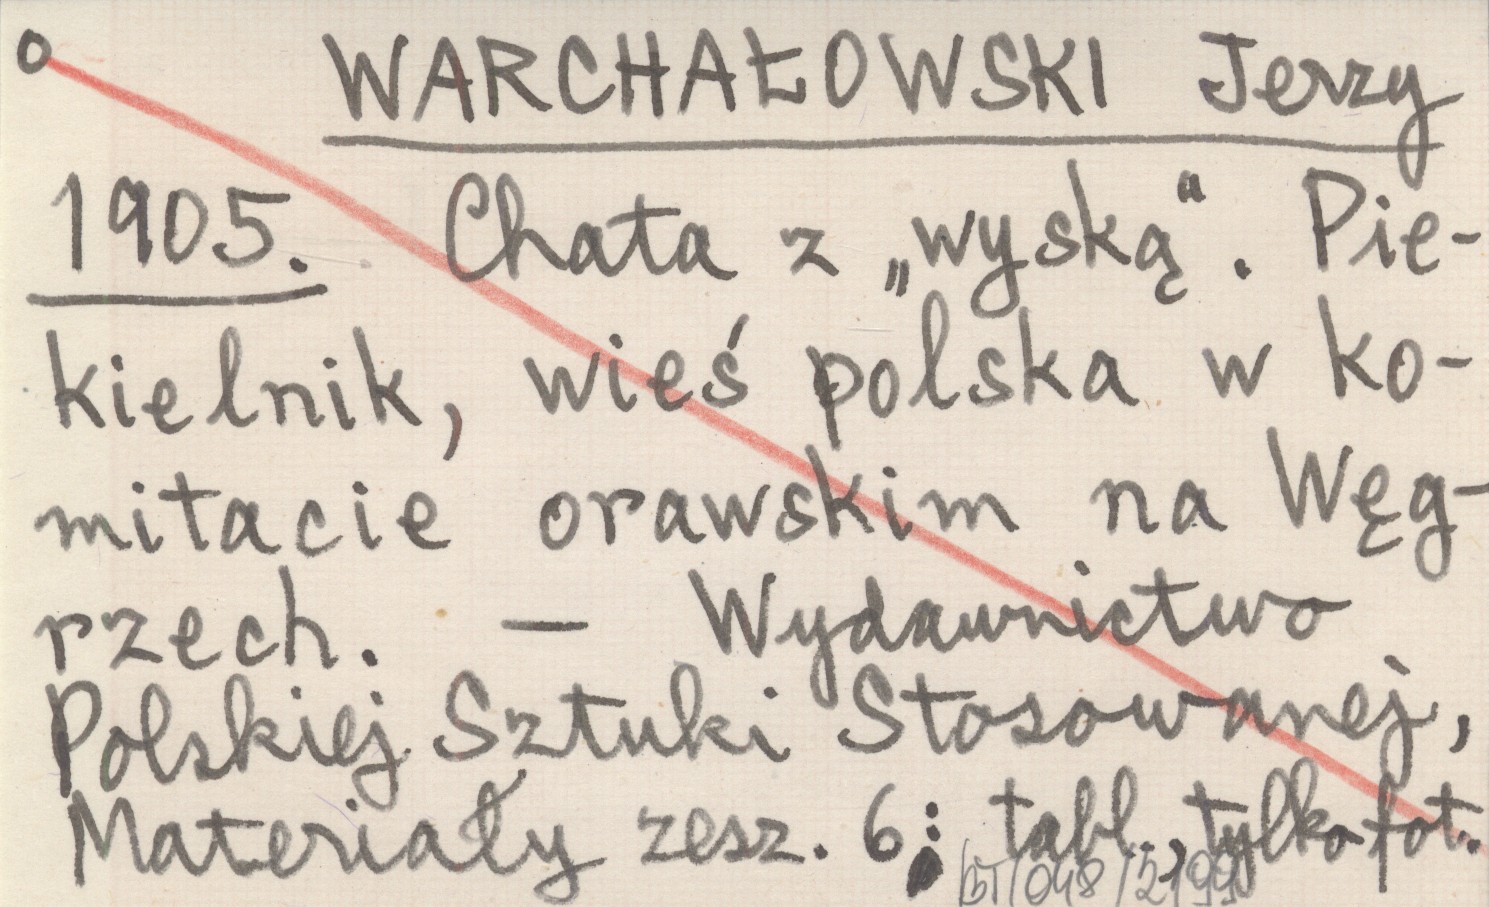 WARCHAŁOWSKI Jerzy
1905. Chata z „wyską“. Pie-
kielnik, wieś polska w ko-
mitacie orawskim na Węg-
rzech. — Wydawnictwo
Polskiej Sztuki Stosowanej,
Materiały zesz. 6; tabl., tylko fot.
BT/048/2199